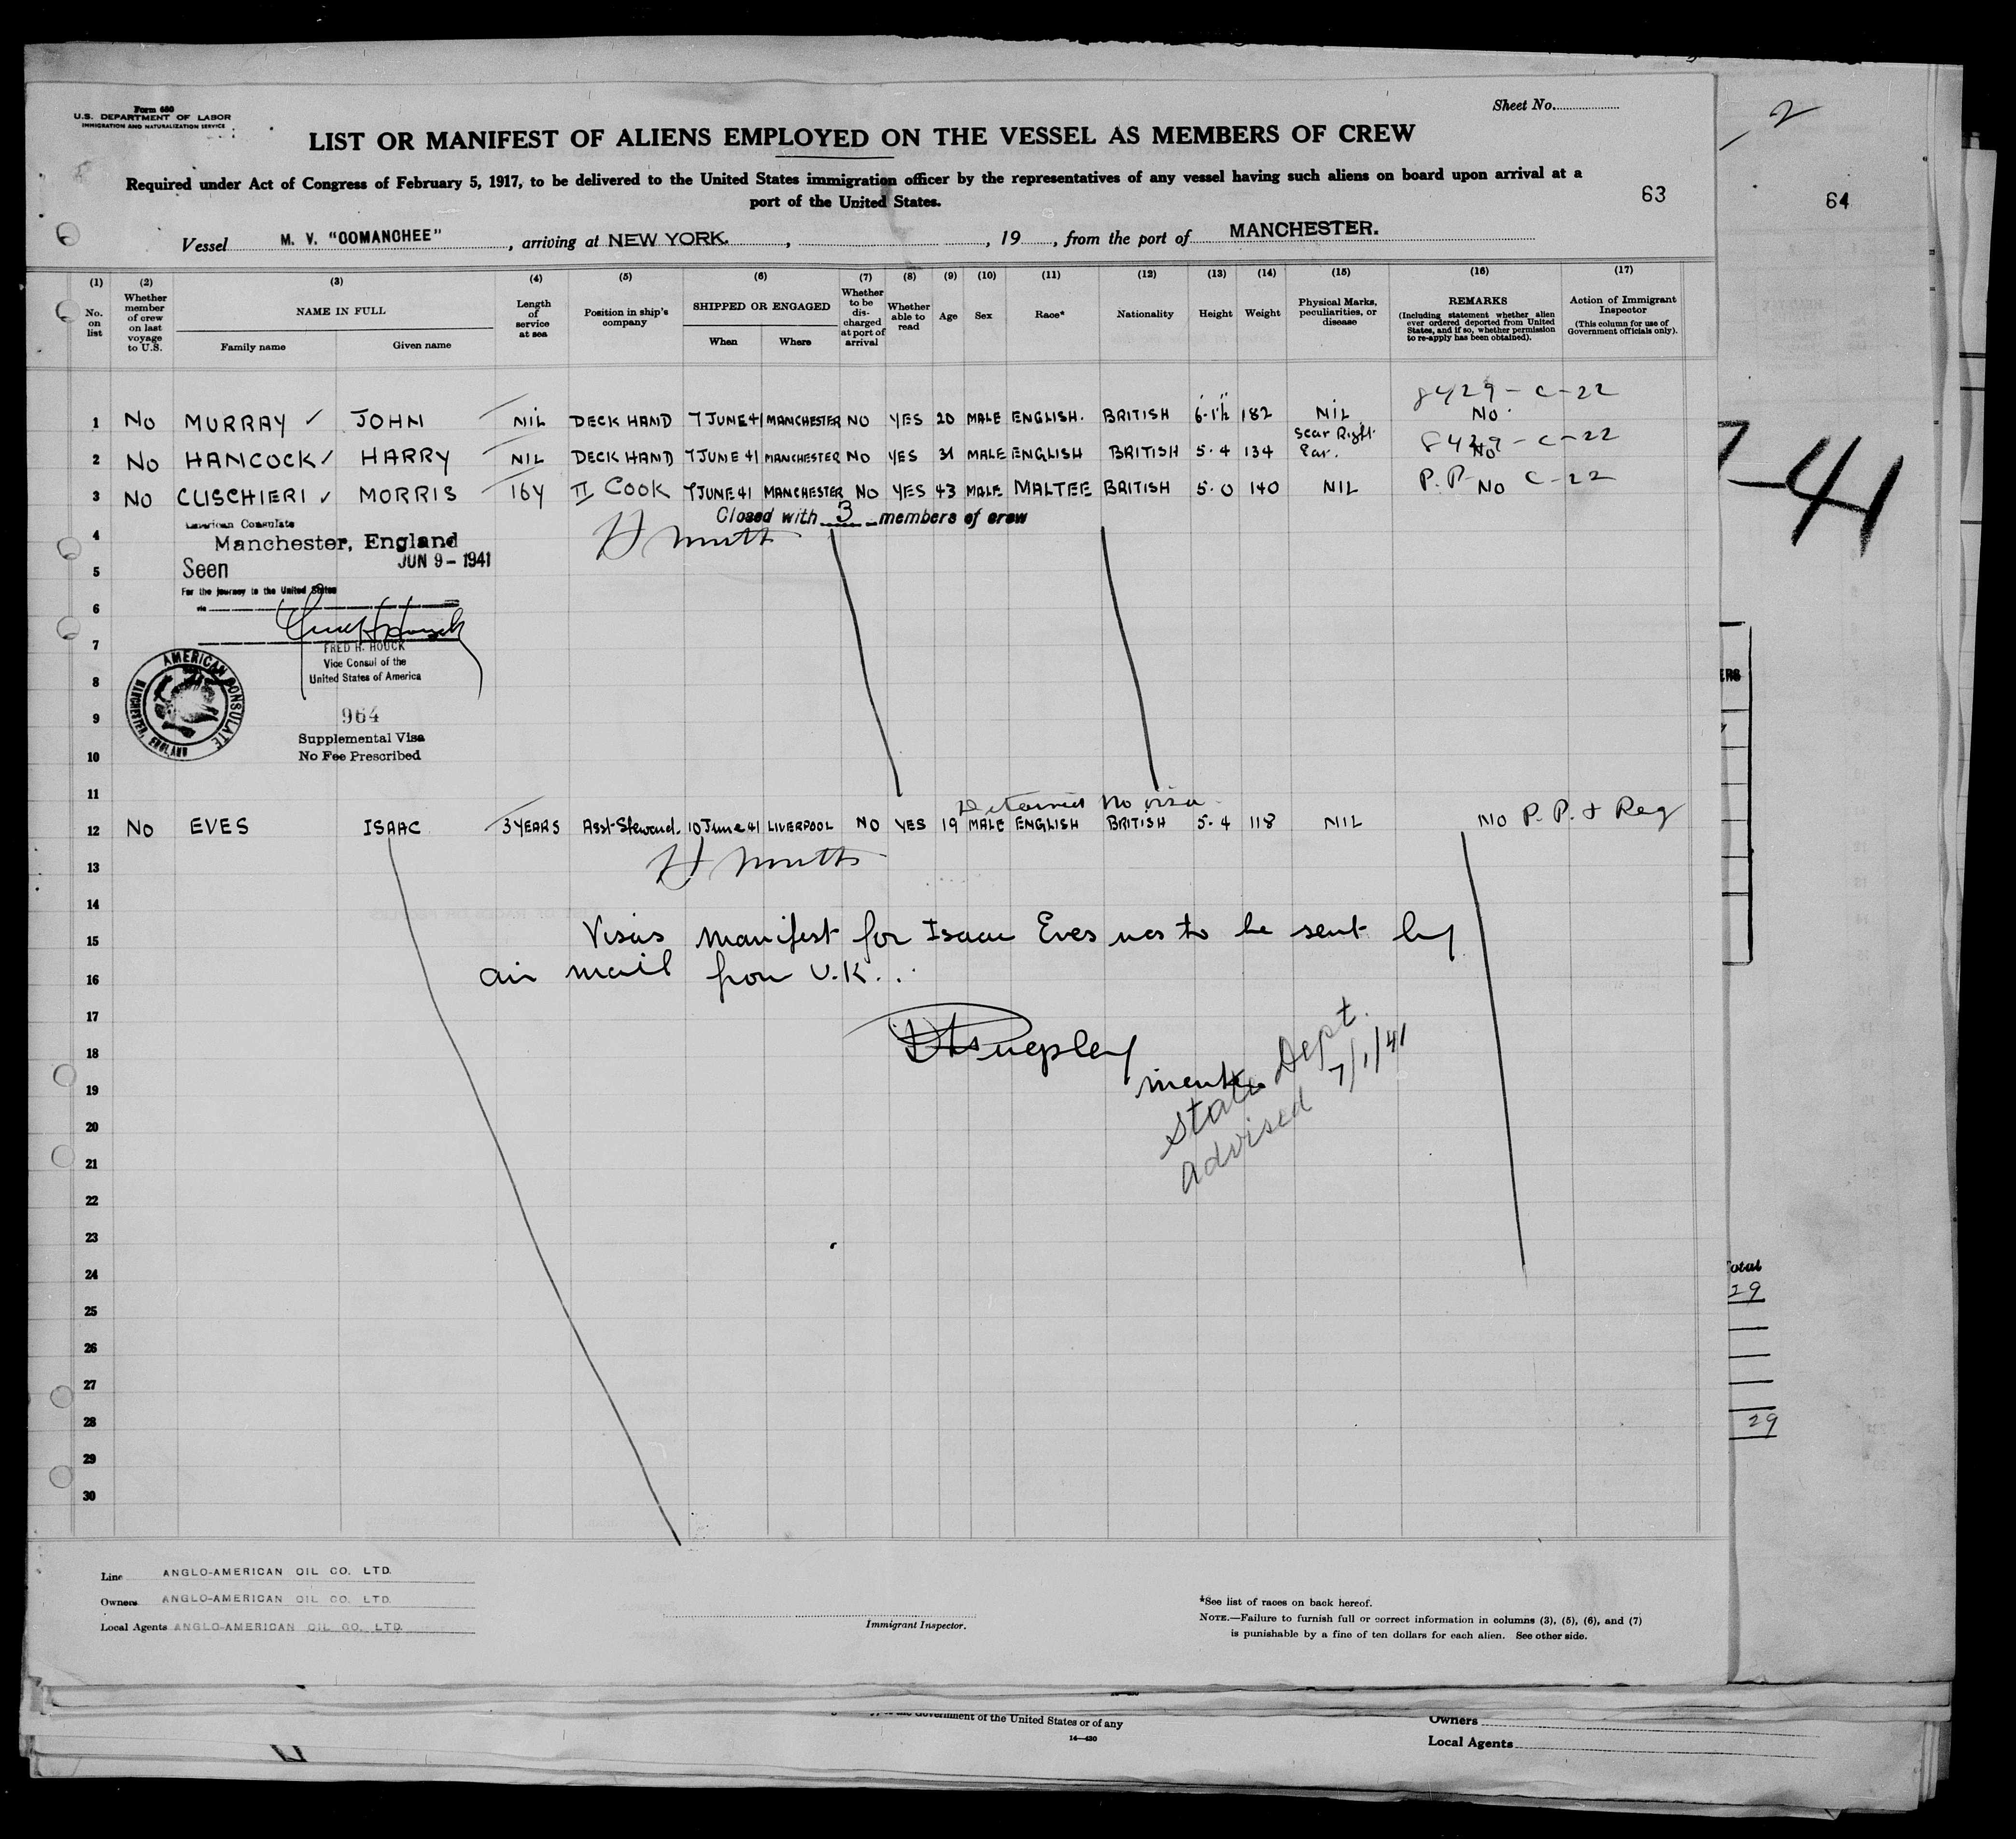 Form 680
U.S. DEPARTMENT OF LABOR
IMMIGRATION AND NATURALIZATION SERVICE
Sheet No.
2
LIST OR MANIFEST OF ALIENS EMPLOYED ON THE VESSEL AS MEMBERS OF CREW
Required under Act of Congress of February 5, 1917, to be delivered to the United States immigration officer by the representatives of any vessel having such aliens on board upon arrival at a
port of the United States.
63
64
Vessel M. V. "COMANCHEE", arriving at NEW YORK, , 19 , from the port of MANCHESTER.
(1) (2) (3) (4) (5) (6) (7) (8) (9) (10) (11) (12) (13) (14) (15) (16) (17)
No. on list
Whether member of crew on last voyage to U.S.
NAME IN FULL
Family name Given name
Length of service at sea
Position in ship's company
SHIPPED OR ENGAGED
When Where
Whether to be discharged at port of arrival
Whether able to read
Age
Sex
Race*
Nationality
Height
Weight
Physical Marks, peculiarities, or disease
REMARKS
(Including statement whether alien ever ordered deported from United States, and if so, whether permission to re-apply has been obtained).
Action of Immigrant Inspector
(This column for use of Government officials only).
8429-C-22
1 No MURRAY ✓ JOHN NIL DECK HAND 7 JUNE 41 MANCHESTER NO YES 20 MALE ENGLISH. BRITISH 6-1½ 182 NIL No.
2 No HANCOCK ✓ HARRY NIL DECK HAND 7 JUNE 41 MANCHESTER NO YES 31 MALE ENGLISH BRITISH 5.4 134 Scar Right Ear. 8429-C-22 No
3 NO CLISCHIERI ✓ MORRIS 16Y II COOK 7 JUNE 41 MANCHESTER NO YES 43 MALE MALTEE BRITISH 5.0 140 NIL P.P. No C-22
Closed with 3 members of crew
7-41
American Consulate
4
Manchester, England
JUN 9-1941
5 Seen
For the journey to the United States
6 via
7
FRED H. HOUCK
Vice Consul of the
8 United States of America
AMERICAN CONSULATE
MANCHESTER, ENGLAND
9 964
Supplemental Visa
10 No Fee Prescribed
11
Detained No visa
12 No EVES ISAAC 3 YEARS Asst-Steward. 10 June 41 LIVERPOOL NO YES 19 MALE ENGLISH BRITISH 5.4 118 NIL No P.P. & Reg
13
14
15 Visas manifest for Isaac Eves was to be sent by
16 air mail from U.K.
17
18
19
State Dept.
advised 7/1/41
20
21
22
23
24
25
26
27
28
29
30
ERS
Total
29
29
Line ANGLO-AMERICAN OIL CO. LTD.
Owners ANGLO-AMERICAN OIL CO. LTD.
Local Agents ANGLO-AMERICAN OIL CO. LTD.
Immigrant Inspector.
*See list of races on back hereof.
NOTE.—Failure to furnish full or correct information in columns (3), (5), (6), and (7)
is punishable by a fine of ten dollars for each alien. See other side.
Government of the United States or of any
14—430
Owners
Local Agents